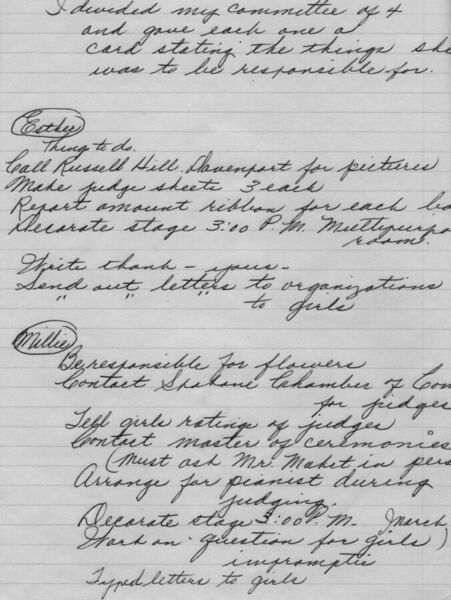 I divided my committee of 4
and gave each one a
card stating the things she
was to be responsible for.
Esther
Things to do.
Call Russell Hill, Davenport for pictures
Make judge sheets 3 each
Report amount ribbon for each
Decorate stage 3:00 P.M. Multipurpose
room.
Write thank-yous-
Send out letters to organizations
" " " to girls
Millie
Be responsible for flowers
Contact Spokane Chamber of Com
for judges
Tell girls rating of judges
Contact master of ceremonies
(Must ask Mr. in pers
Arrange for pianist during
judging.
Decorate stage 3:00 P.M. March
Work on question for girls)
impromptu
Typed letters to girls